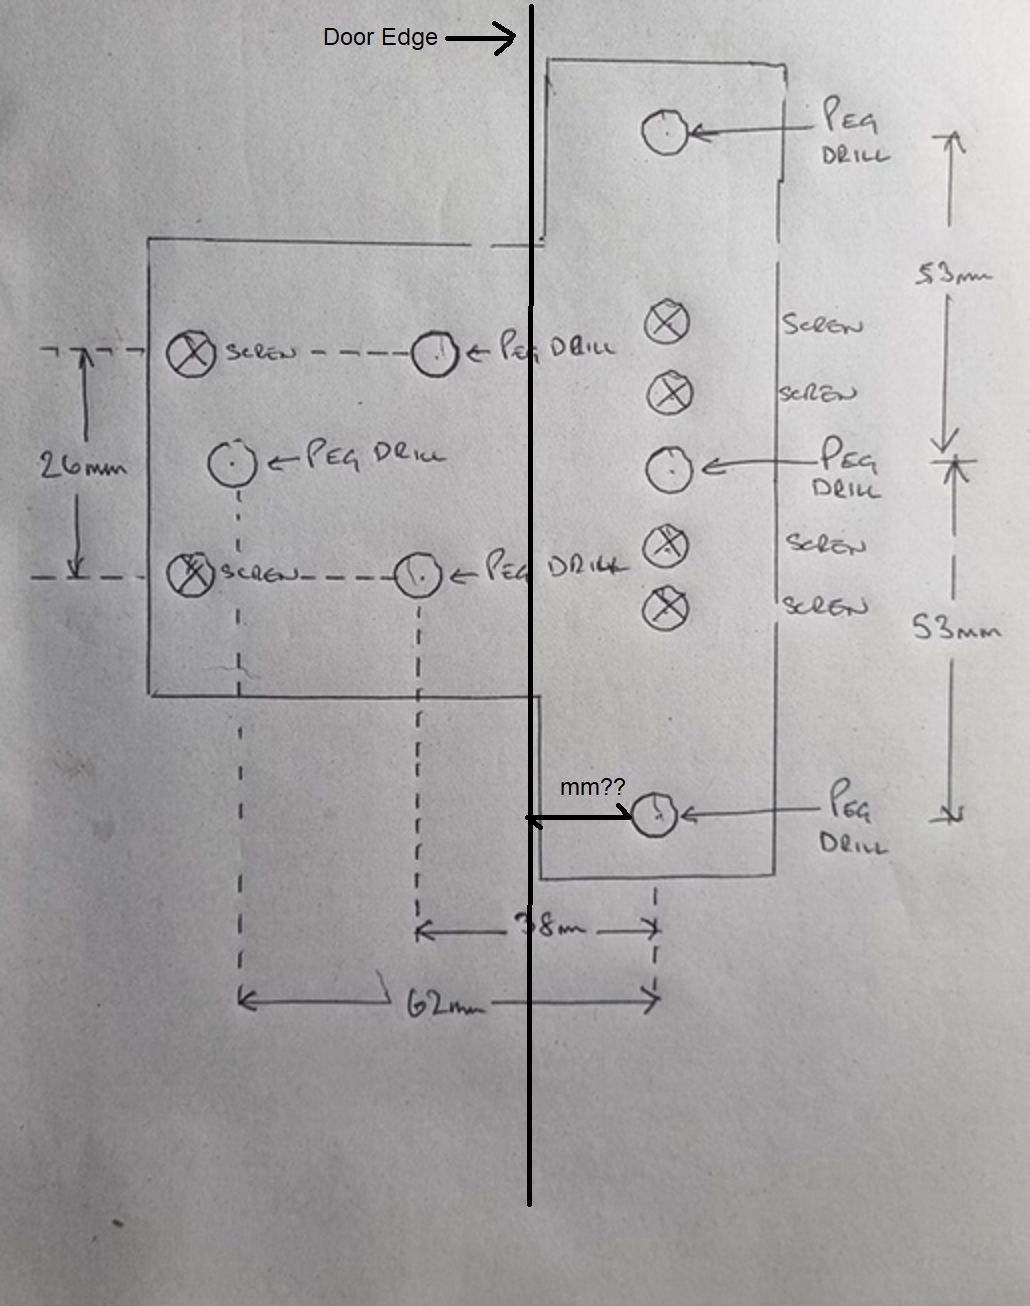 Door Edge
PEG
DRILL
53mm
SCREW
SCREW
PEG DRILL
SCREW
26mm
PEG DRILL
PEG
DRILL
SCREW
SCREW
PEG DRILL
SCREW
53mm
mm??
PEG
DRILL
38mm
62mm